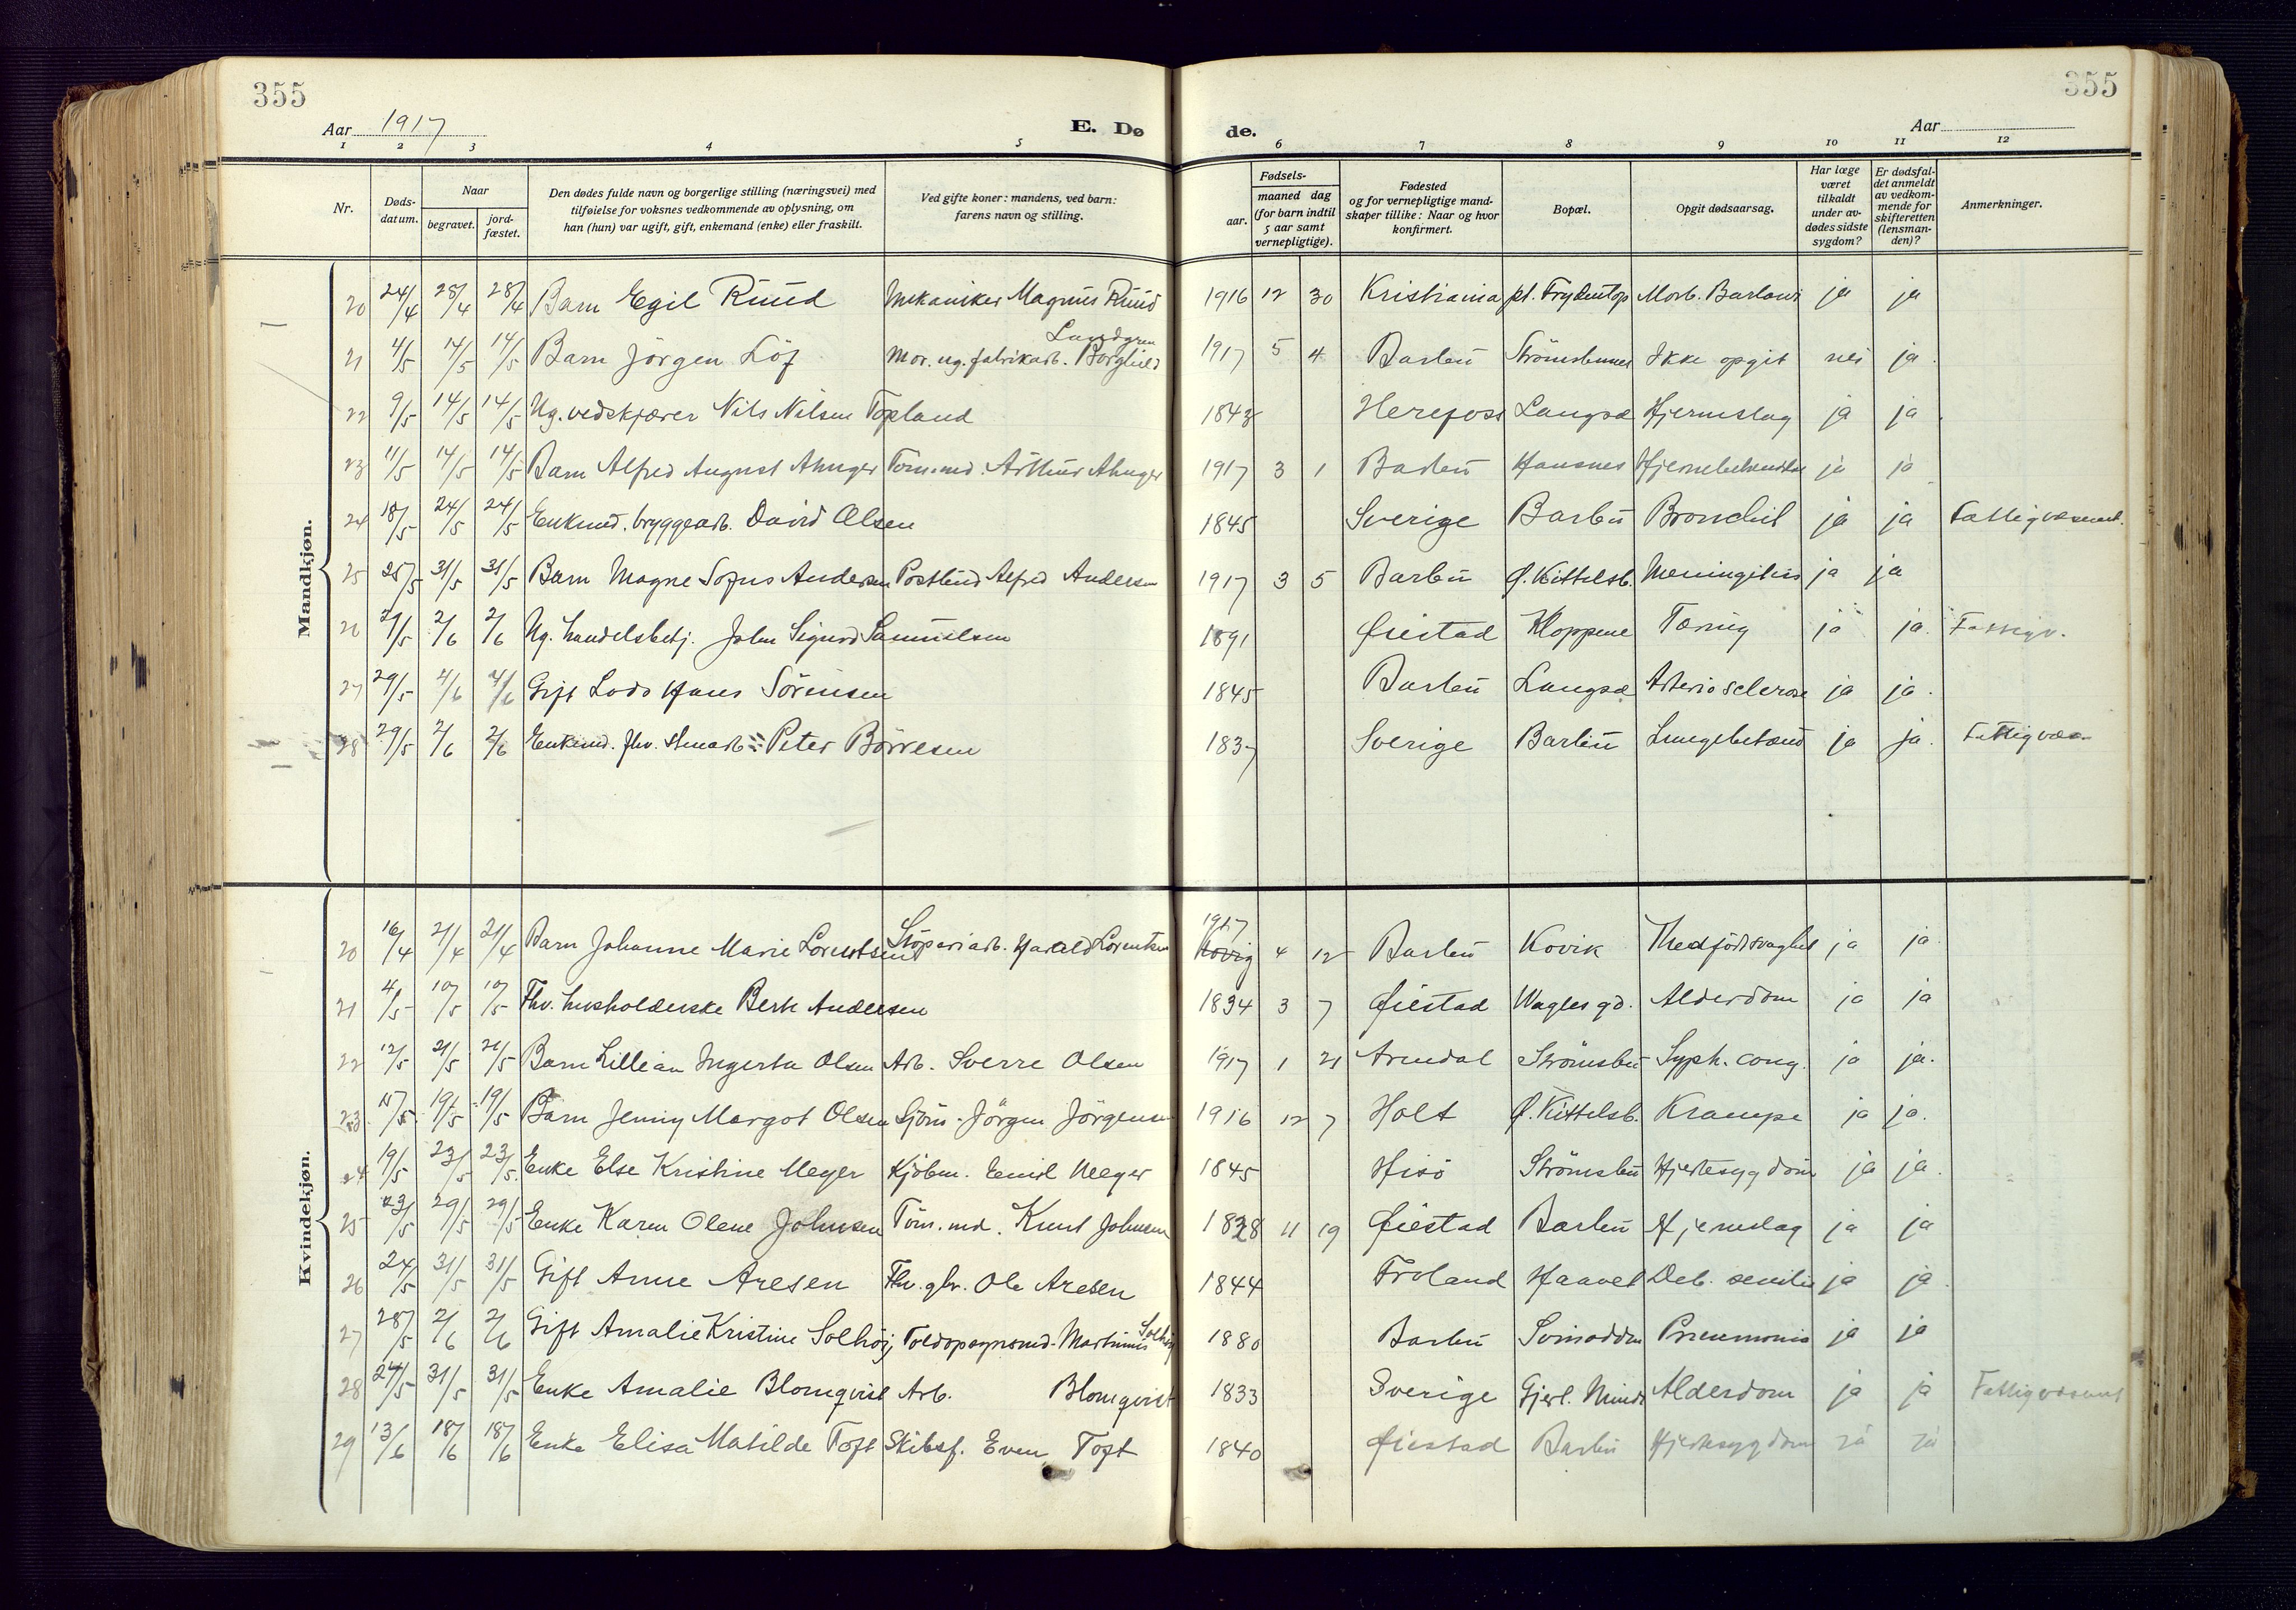 355
355
Aar 1917
E. Dø
de.
Aar
1 2 3 4 5 6 7 8 9 10 11 12
Nr.
Døds-
datum.
Naar
begravet.
jord-
fæstet.
Den dødes fulde navn og borgerlige stilling (næringsvei) med
tilføielse for voksnes vedkommende av oplysning, om
han (hun) var ugift, gift, enkemand (enke) eller fraskilt.
Ved gifte koner: mandens, ved barn:
farens navn og stilling.
Fødsels-
aar.
maaned dag
(for barn indtil
5 aar samt
vernepligtige).
Fødested
og for vernepligtige mand-
skaper tillike: Naar og hvor
konfirmert.
Bopæl.
Opgit dødsaarsag.
Har læge
været
tilkaldt
under av-
dødes sidste
sygdom?
Er dødsfal-
det anmeldt
av vedkom-
mende for
skifteretten
(lensman-
den)?
Anmerkninger.
Mandkjøn.
20 24/4 28/4 28/4 Barn Egil Ruud Mekaniker Magnus Ruud 1916 12 30 Kristiania pt. Frydentop Morb. Barlowi ja ja
Landgren
21 4/5 14/5 14/5 Barn Jörgen Löf Mor. ug. fabrikarb. Borghild 1917 5 4 Barbu Strömsbunes Ikke opgit nei ja.
22 9/5 14/5 14/5 Ug. vedskjærer Nils Nilsen Topland 1843 Herefoss Langsæ Hjerneslag ja ja.
23 11/5 14/5 14/5 Barn Alfred August Ahnger Töm.md. Arthur Ahnger 1917 3 1 Barbu Hansnes ja ja
24 18/5 24/5 24/5 Enkemd. bryggearb. David Olsen 1845 Sverige Barbu Bronchit ja ja Fattigvæsenet.
25 25/5 31/5 31/5 Barn Magne Sofus Andersen Postbud Alfred Andersen 1917 3 5 Barbu Ø. Kittelsb. Meningitis ja ja
26 27/5 2/6 2/6 Ug. handelsbetj. John Sigurd Samuelsen 1891 Øiestad Kloppene Tæring ja ja. Fattigv.
27 29/5 4/6 4/6 Gift Lods Hans Sörensen 1845 Barbu Langsæ Arteriosclerose ja ja.
28 29/5 2/6 2/6 Enkemd. fhv. stenarb. Peter Börresen 1837 Sverige Barbu Lungebetænd ja ja. Fattigvæs.
Kvindekjøn.
20 16/4 21/4 21/4 Barn Johanne Marie Lorentsen Stöperiarb. Harald Lorentsen 1917 Kovig 4 12 Barbu Kovik Medfödt svaghet ja ja.
21 4/5 10/5 10/5 Fhv. husholderske Berte Andersen 1834 3 7 Øiestad Wagles gd. Alderdom ja ja
22 12/5 21/5 21/5 Barn Lillian Ingerta Olsen Arb. Sverre Olsen 1917 1 21 Arendal Strömsbu Syph. cong. ja ja.
23 15/5 19/5 19/5 Barn Jenny Margot Olsen Sjöm. Jörgen Jörgensen 1916 12 7 Holt Ø. Kittelsb. Krampe ja ja.
24 19/5 23/5 23/5 Enke Else Kristine Meyer Kjöbm. Emil Meyer 1845 Hisö Strömsbu Hjertesygdom ja ja.
25 23/5 29/5 29/5 Enke Karen Olene Johnsen Töm. md. Knut Johnsen 1828 11 19 Øiestad Barbu Hjerneslag ja ja
26 24/5 31/5 31/5 Gift Anne Aresen Fhv. gbr. Ole Aresen 1844 Froland Haavet Deb. senilis ja ja.
27 28/5 2/6 2/6 Gift Amalie Kristine Solhöi, Toldopsynsmd. Martinius Solhöi 1880 Barbu Svinodden Pneumonia ja ja
28 24/5 31/5 31/5 Enke Amalie Blomqvist Arb. Blomqvist 1833 Sverige Gjerl. Minde Alderdom ja ja Fattigvæsenet
29 13/6 18/6 18/6 Enke Elisa Matilde Toft Skibsf. Even Toft 1840 Øiestad Barbu Hjertesygdom ja ja